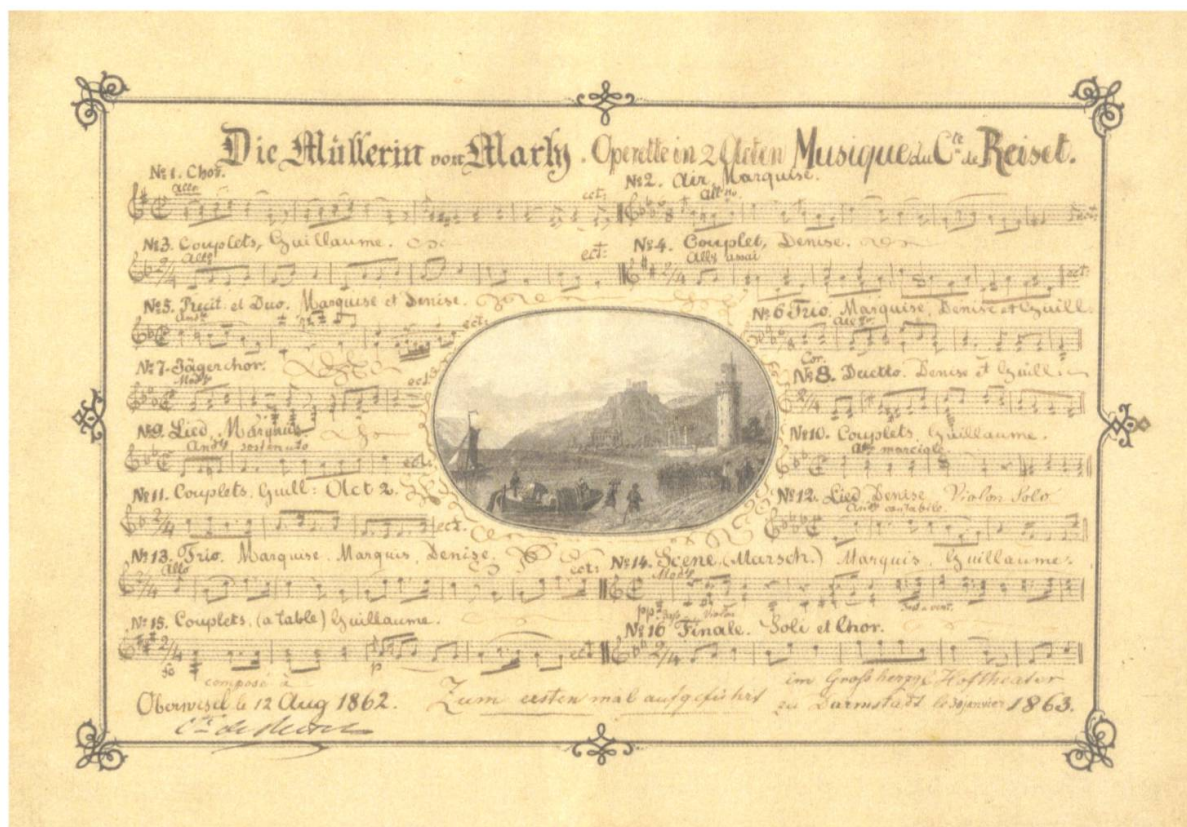 Die Müllerin von Marly. Operette in 2 Acten Musique du Cte de Reiset.
No 1. Chor.
Allo
ect:
No 2. Air, Marquise.
No 3. Couplets, Guillaume.
ect:
No 4. Couplet, Denise.
ect:
No 5. Recit. et Duo. Marquise et Denise.
ect:
No 6 Trio. Marquise, Denise et Guill.
No 7. Jägerchor.
Modto
ect:
Cor.
No 8. Duetto. Denise et Guill.
No 9. Lied, Marquis.
Andte sostenuto
ect.
No 10. Couplets, Guillaume.
marciale
No 11. Couplets, Guill: Act 2.
ect.
No 12. Lied Denise Violon Solo
Andte cantabile.
No 13. Trio. Marquise. Marquis, Denise.
Allo
ect:
No 14. Scene, (Marsch.) Marquis, Guillaume.
Modto
pp
Violon
No 15. Couplets, (a table) Guillaume.
p
ect
No 16 Finale. Soli et Chor.
composé à
Oberwesel le 12 Aug 1862.
Cte de Reiset
Zum ersten mal aufgeführt
im Großherzgl Hoftheater
zu Darmstadt le 30 janvier 1863.